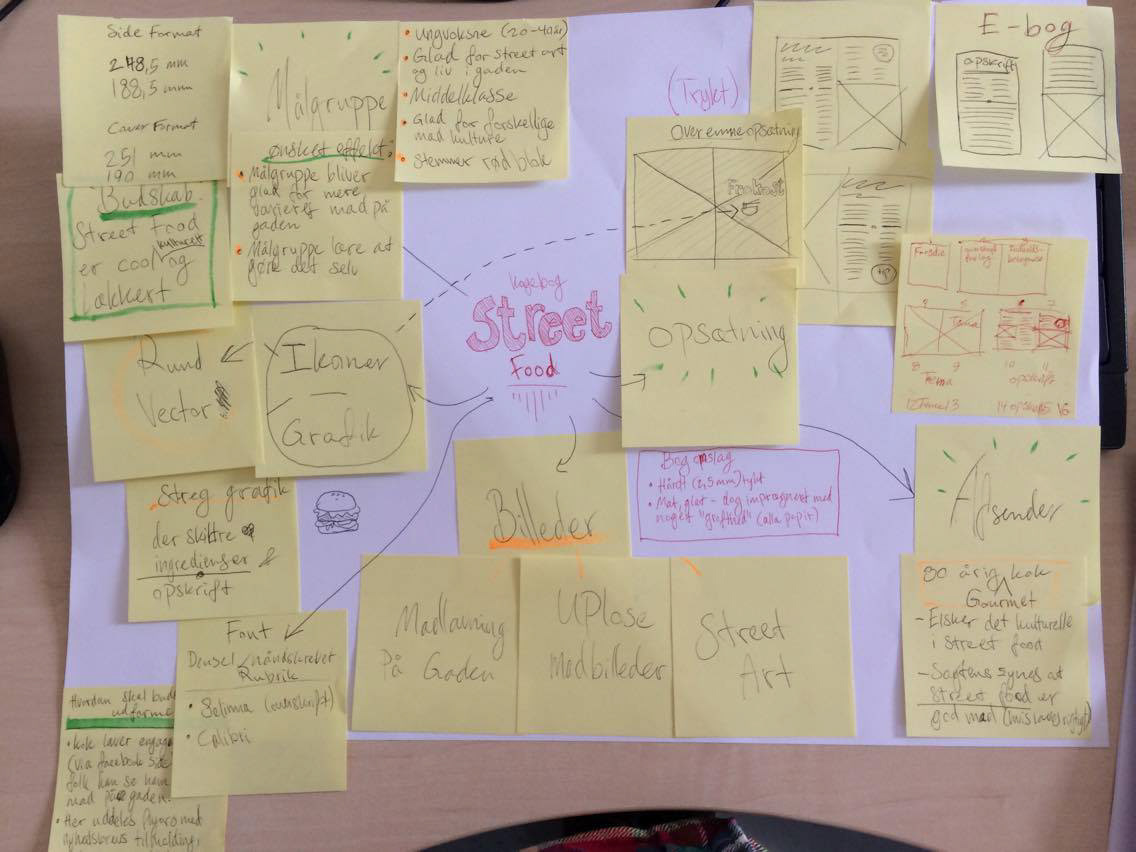 Side Format
248,5 mm
188,5 mm
Cover Format
251 mm
190 mm
Målgruppe
Ønsket effekt:
• Målgruppe bliver
glad for mere
mad på
gaden
• Målgruppe lære at
gøre det selv
• Ungvoksne (20-40år)
• Glad for street art
og liv i gaden
• Middelklasse
• Glad for forskellige
mad kulture
• Stemmer rød blok
Budskab:
Street Food
kulturelt
er cool og
Lækkert
Rund
Vector
Ikoner
Grafik
Streg grafik
der skitre
ingredienser
opskrift
Font
håndskrevet
Rubrik
• Selima
• Calibri
Hvordan skal
udforme
• Kok laver
(via facebook
folk kan se ham
mad på gaden.
• Her uddeles flyers med
Kogebog
Street
Food
Billeder
Madlavning
På
Gaden
Uplose
Madbilleder
Street
Art
Bog opslag
• Hårdt (2,5mm) tykt
• Mat, glat - dog imprægneret med
noget (alla papir)
(Trykt)
Over emne opsætning
Frokost
Opsætning
E-bog
opskrift
Forside
Tema
8 9
Tema
10 11
opskrift
12 Tema 13
14 opskrift 15 16
Afsender
30 årig kok
Gourmet
- Elsker det kulturelle
i street food
- synes at
street food er
god mad